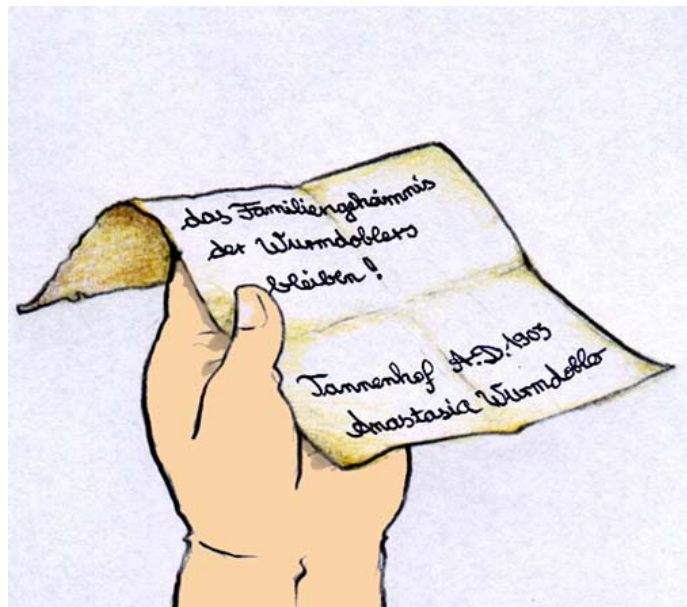 das Familiengeheimnis
der Wurmdoblers
bleiben!
Tannenhof A.D.1905
Anastasia Wurmdoblo